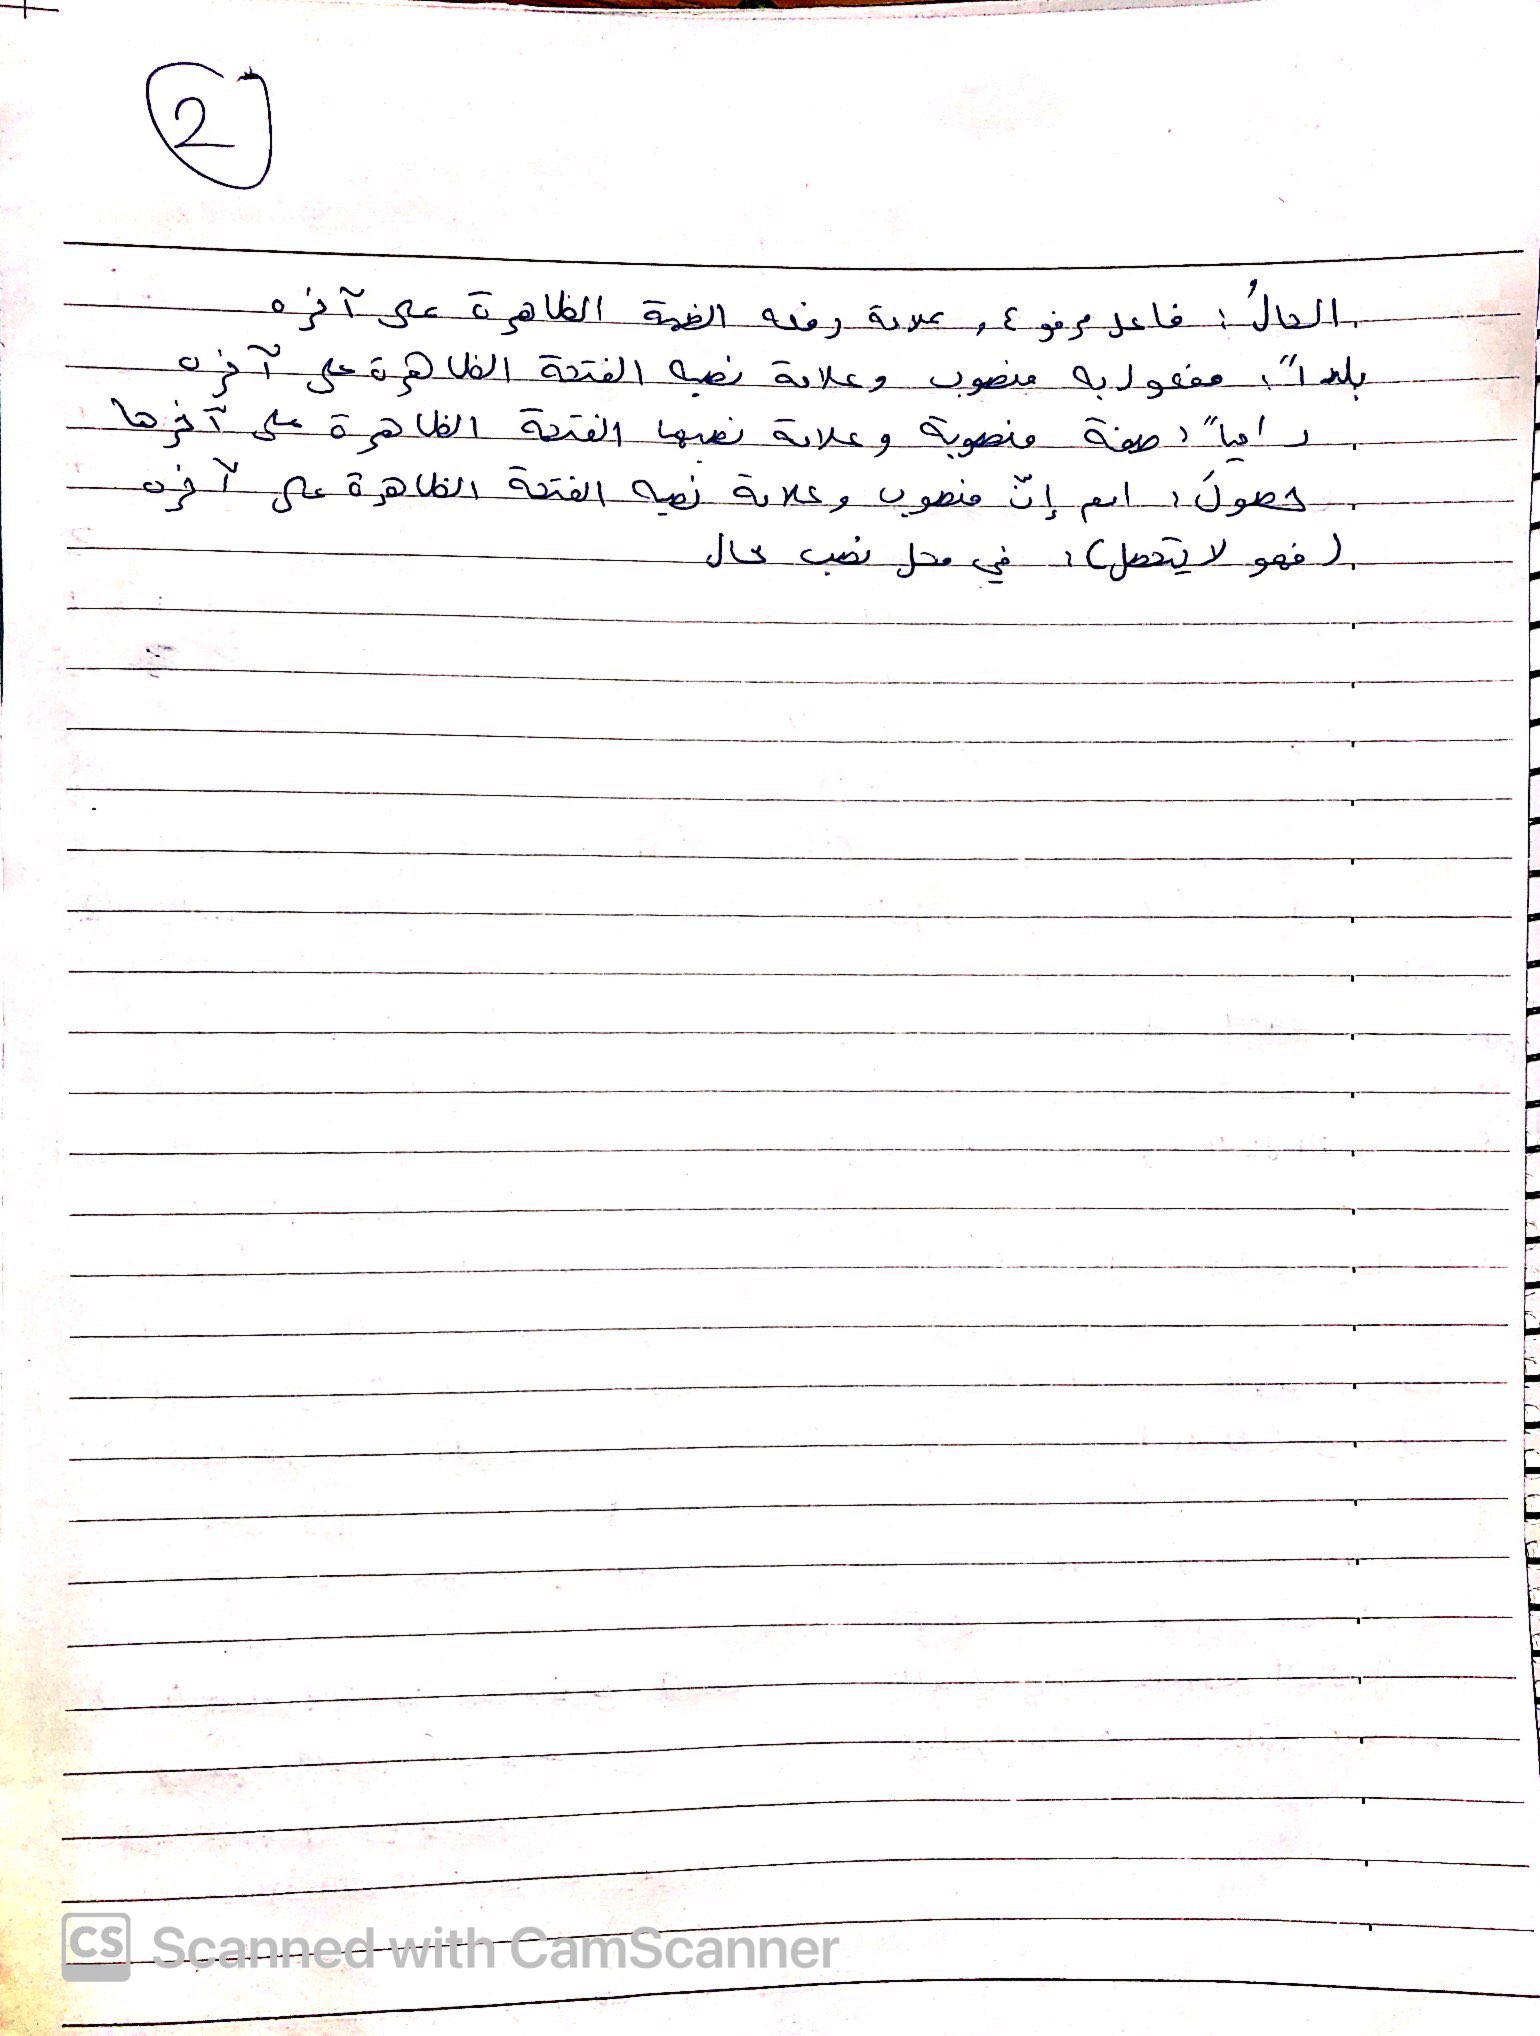 2
الحالُ: فاعل مرفوع، علامة رفعه الضمة الظاهرة على آخره
بلداً: مفعول به منصوب وعلامة نصبه الفتحة الظاهرة على آخره
راقياً: صفة منصوبة وعلامة نصبها الفتحة الظاهرة على آخرها
حصولَ: اسم إنّ منصوب وعلامة نصبه الفتحة الظاهرة على آخره
(فهو لا يتحصل): في محل نصب حال
CS Scanned with CamScanner